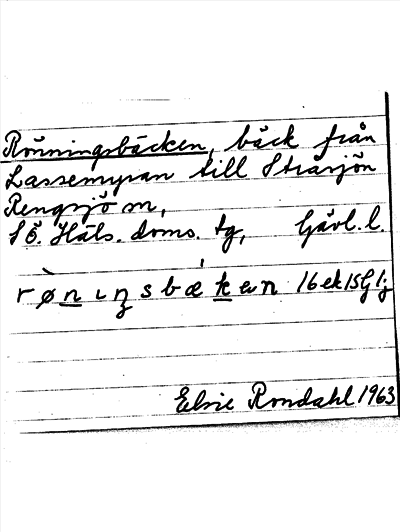 Rönningsbäcken, bäck från
Lassemyran till Stråsjön
Rengsjö sn,
SÖ. Häls. doms. tg, Gävl. l.
rø̀nıŋsbækɐn 16ek15G1j
Elsie Rondahl 1963